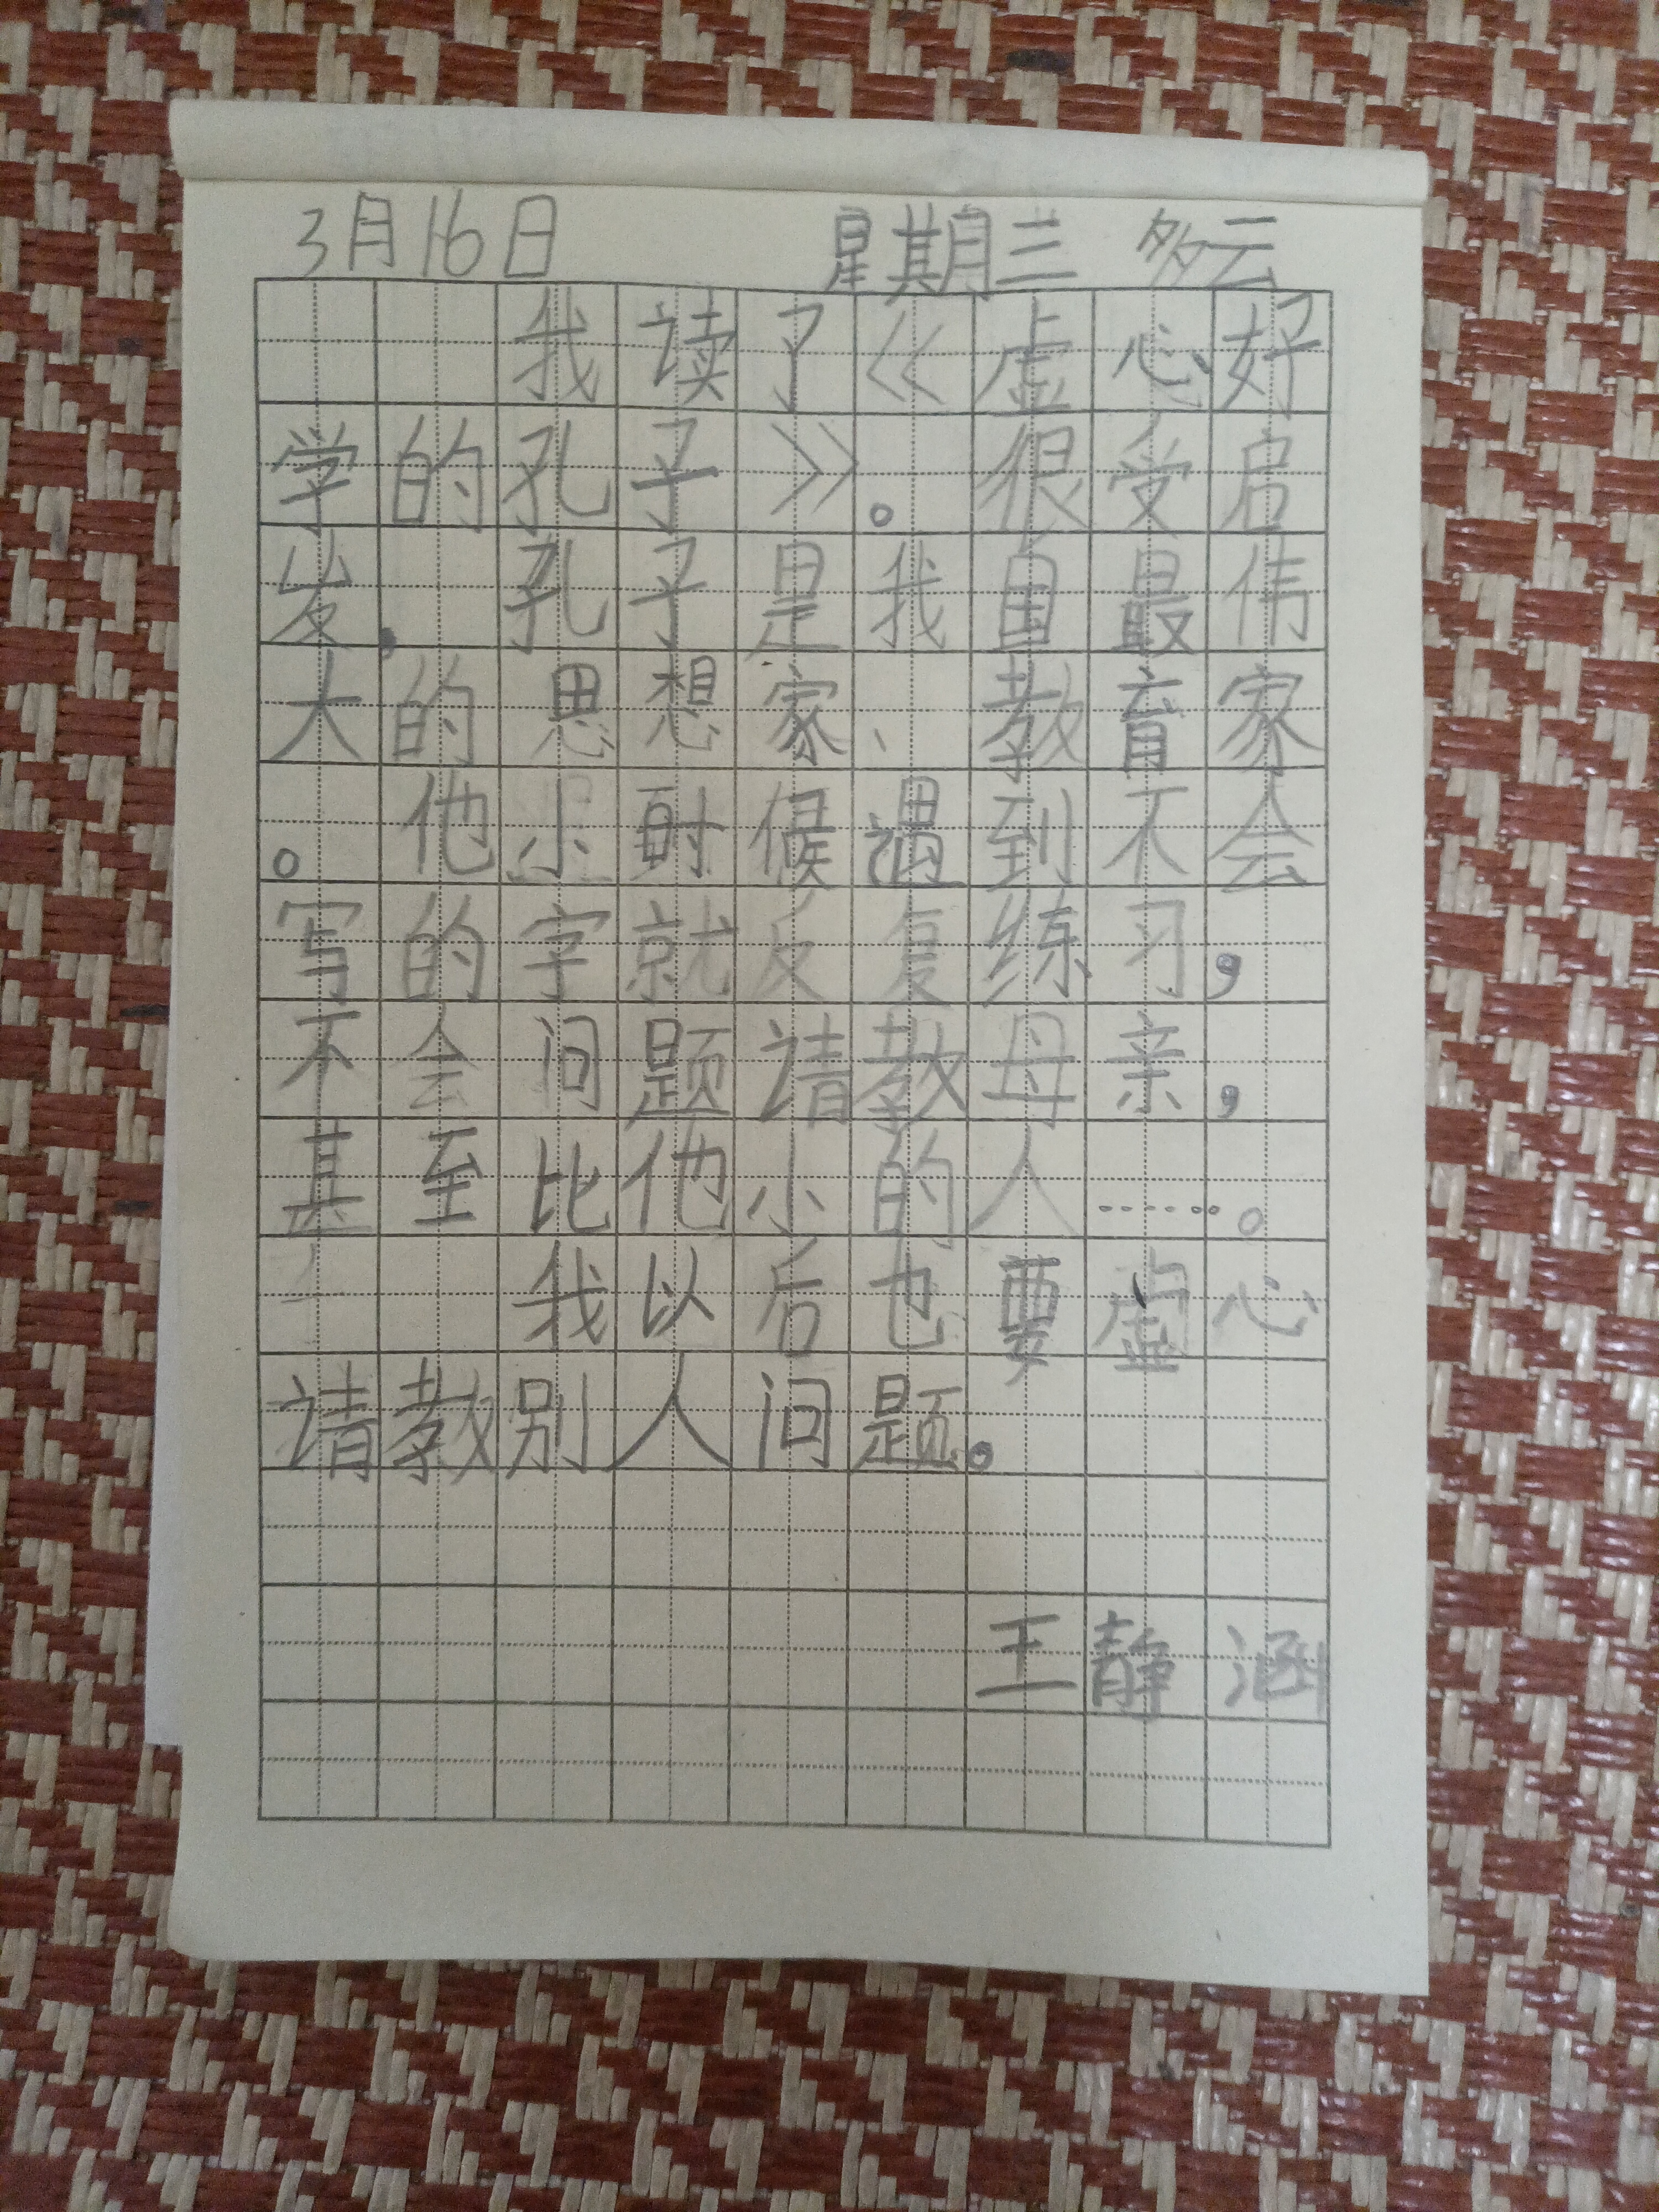 3月16日 星期三 多云
我读了《虚心好
学的孔子》。很受启
发，孔子是我国最伟
大的思想家、教育家
。他小时候遇到不会
写的字就反复练习，
不会问题请教母亲，
甚至比他小的人……。
我以后也要虚心
请教别人问题。
王静涵